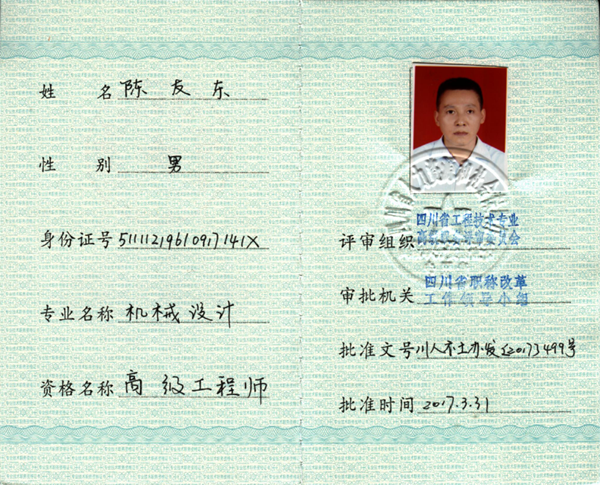 姓 名 陈友东
性 别 男
身份证号 51111219610917141X
专业名称 机械设计
资格名称 高级工程师
评审组织 四川省工程技术专业
高级职务评审委员会
审批机关 四川省职称改革
工作领导小组
批准文号 川人社办发[2017]499号
批准时间 2017.3.31